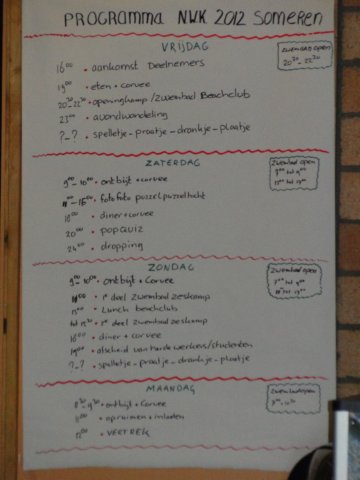 PROGRAMMA NWK 2012 SOMEREN
VRIJDAG
Zwembad open
20³⁰ - 22³⁰
16⁰⁰ • aankomst Deelnemers
19⁰⁰ • eten + corvee
20³⁰-22³⁰ • openingkamp/Zwembad Beachclub
23⁰⁰ • avondwandeling
?-? • spelletje - praatje - drankje - plaatje
ZATERDAG
Zwembad open
9⁰⁰ - 10⁰⁰ • ontbijt + corvee
11⁰⁰ - 16⁰⁰ • foto foto puzzel puzzeltocht
18⁰⁰ • diner + corvee
20⁰⁰ • POPQUIZ
24⁰⁰ • dropping
ZONDAG
Zwembad open
9⁰⁰ - 10⁰⁰ • ontbijt + Corvee
11⁰⁰ • 1ᵉ deel Zwembad zeskamp
13⁰⁰ • Lunch beachclub
• 2ᵉ deel Zwembad zeskamp
18⁰⁰ • diner + corvee
19⁰⁰ • afscheid van harde werkers/studenten
?-? • spelletje - praatje - drankje - plaatje
MAANDAG
Zwembad open
8³⁰ - 9³⁰ • ontbijt + Corvee
11⁰⁰ • opruimen + inladen
12⁰⁰ • VERTREK